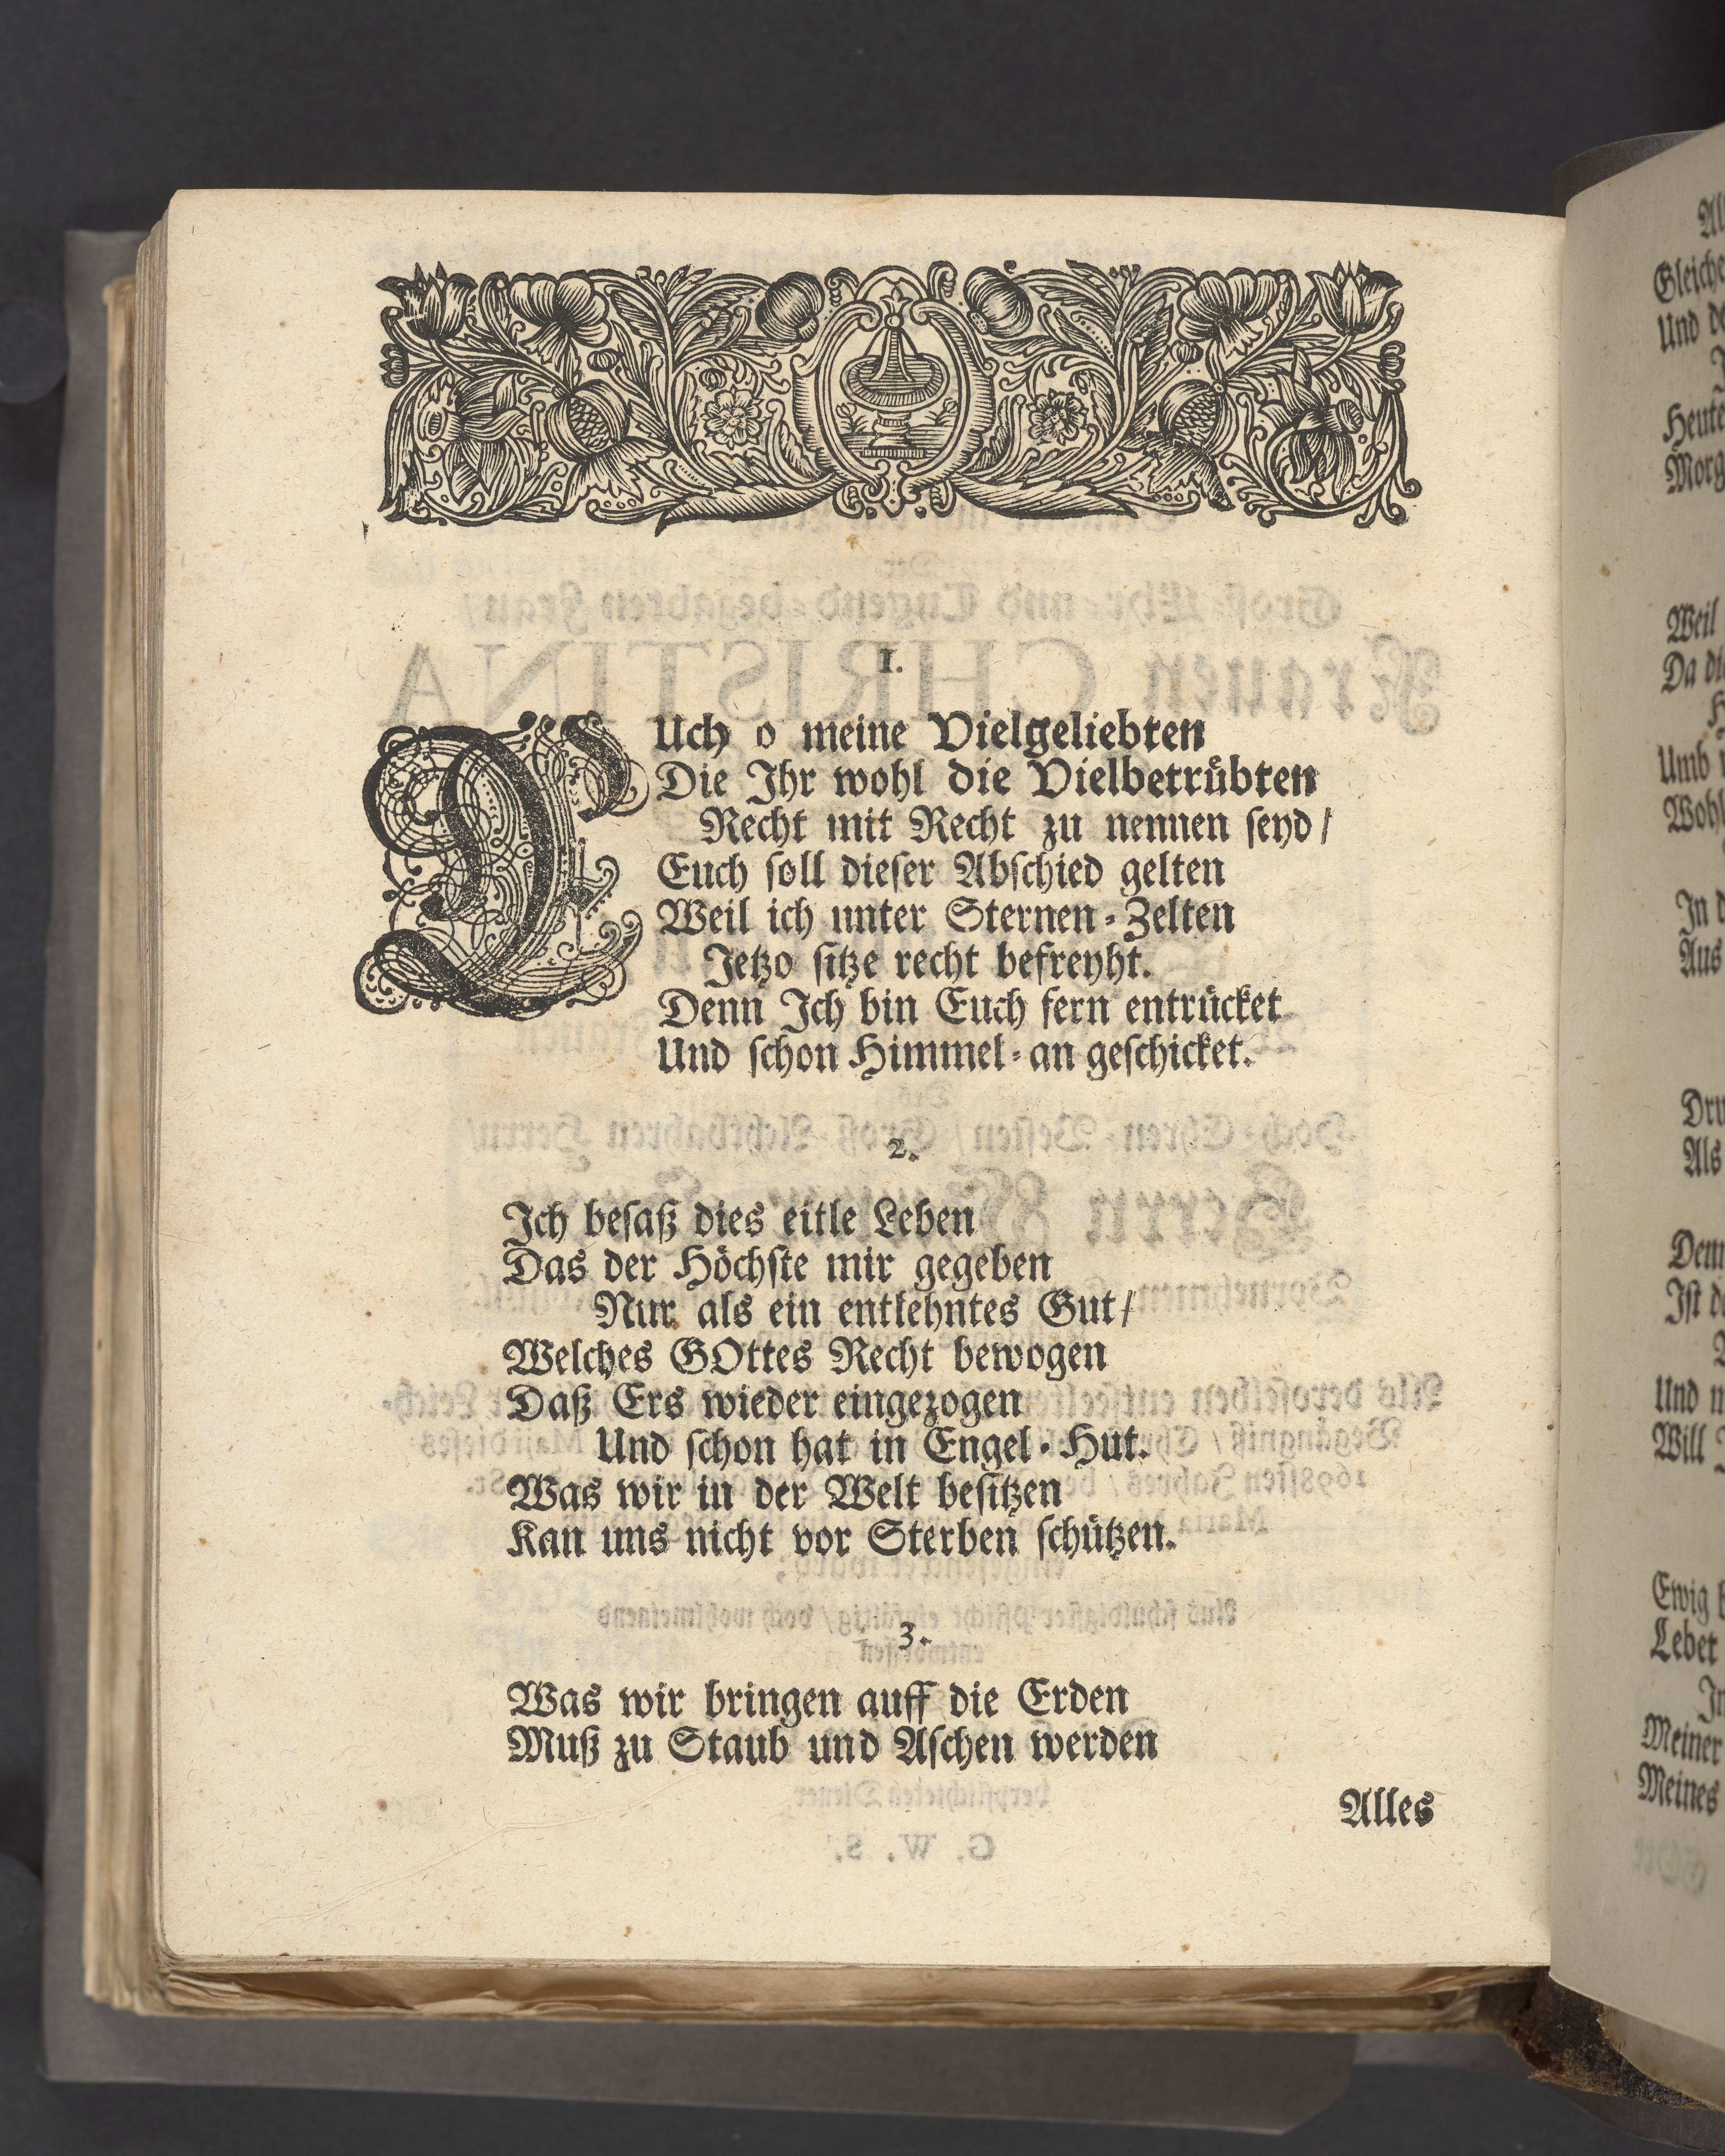 1.
EUch o meine Vielgeliebten
Die Ihr wohl die Vielbetrübten
Recht mit Recht zu nennen seyd /
Euch soll dieser Abschied gelten
Weil ich unter Sternen-Zelten
Jetzo sitze recht befreyht.
Denn Ich bin Euch fern entrücket
Und schon Himmel-an geschicket.
2.
Ich besaß dies eitle Leben
Das der Höchste mir gegeben
Nur als ein entlehntes Gut /
Welches GOttes Recht bewogen
Daß Ers wieder eingezogen
Und schon hat in Engel-Hut.
Was wir in der Welt besitzen
Kan uns nicht vor Sterben schützen.
3.
Was wir bringen auff die Erden
Muß zu Staub und Aschen werden
Alles
Und
Weil
Da
Umb
In
Aus
Als
Ist
Und
Will
Ewig
Lebet
Meiner
Meines